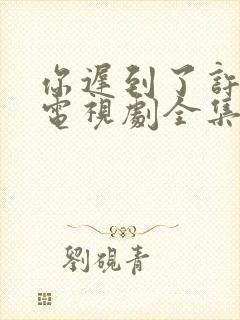 你遲到了許
電視劇全集
劉硯青